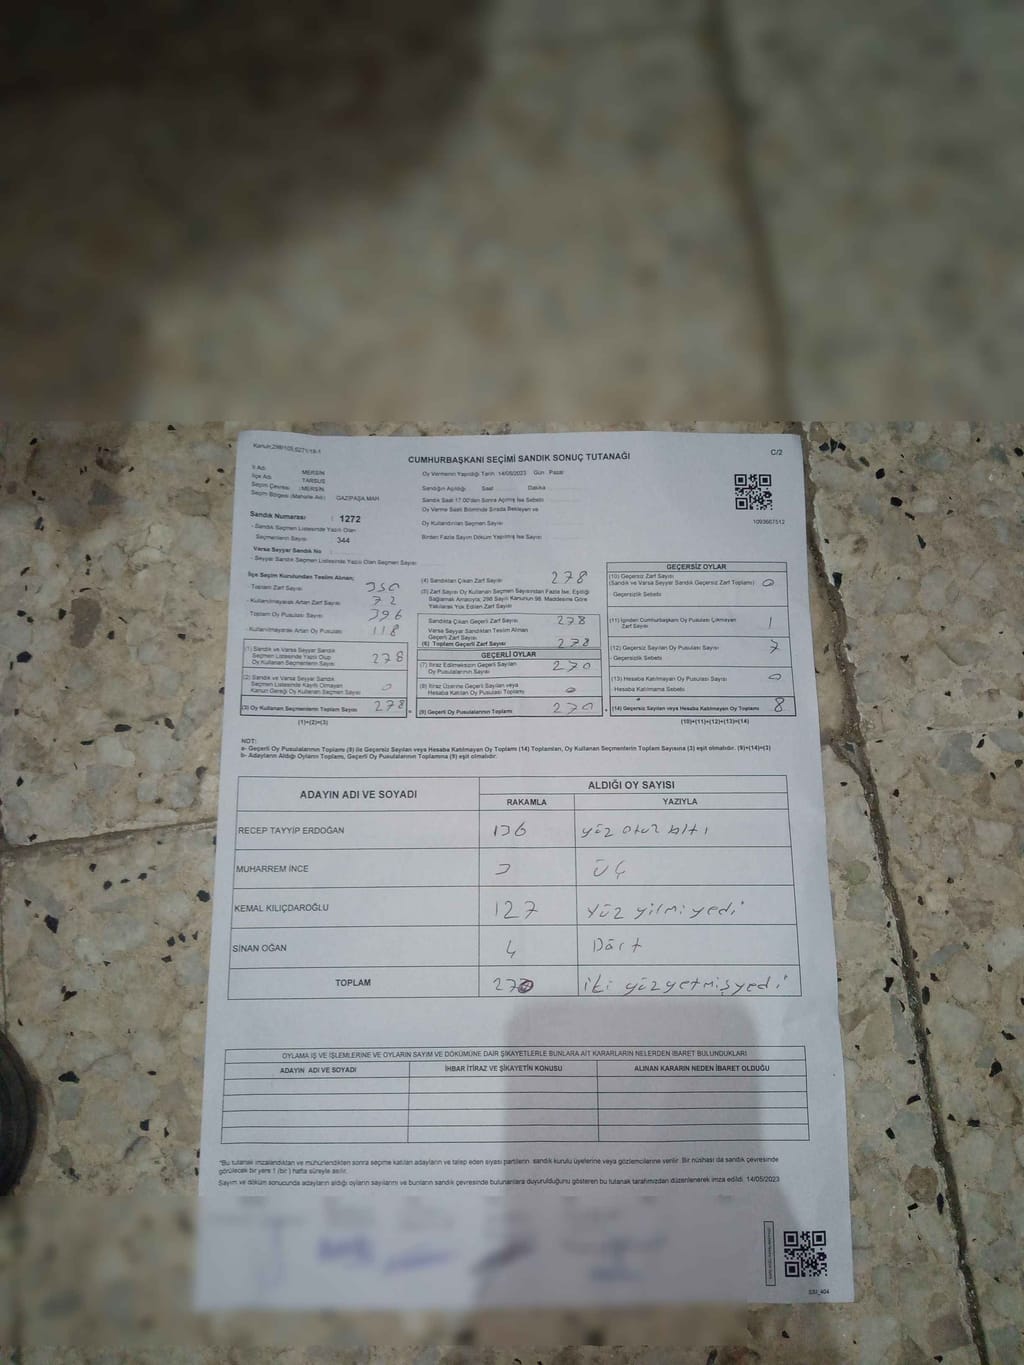 Kanun;298/105,6271/19-1
CUMHURBAŞKANI SEÇİMİ SANDIK SONUÇ TUTANAĞI
C/2
İl Adı : MERSİN
İlçe Adı : TARSUS
Seçim Çevresi : MERSİN
Seçim Bölgesi (Mahalle Adı) : GAZİPAŞA MAH
Sandık Numarası : 1272
- Sandık Seçmen Listesinde Yazılı Olan
Seçmenlerin Sayısı 344
Varsa Seyyar Sandık No
- Seyyar Sandık Seçmen Listesinde Yazılı Olan Seçmen Sayısı
Oy Vermenin Yapıldığı Tarih 14/05/2023 Gün : Pazar
Sandığın Açıldığı Saat Dakika
Sandık Saat 17.00'den Sonra Açılmış İse Sebebi
Oy Verme Saati Bitiminde Sırada Bekleyen ve
Oy Kullandırılan Seçmen Sayısı
Birden Fazla Sayım Döküm Yapılmış İse Sayısı
1093667512
İlçe Seçim Kurulundan Teslim Alınan;
- Toplam Zarf Sayısı 350
- Kullanılmayarak Artan Zarf Sayısı 72
- Toplam Oy Pusulası Sayısı 396
- Kullanılmayarak Artan Oy Pusulası 118
(1) Sandık ve Varsa Seyyar Sandık
Seçmen Listesinde Yazılı Olup
Oy Kullanan Seçmenlerin Sayısı 278
(2) Sandık ve Varsa Seyyar Sandık
Seçmen Listesinde Kayıtlı Olmayan
Kanun Gereği Oy Kullanan Seçmen Sayısı 0
(3) Oy Kullanan Seçmenlerin Toplam Sayısı 278 =
(1)+(2)=(3)
(4) Sandıktan Çıkan Zarf Sayısı 278
(5) Zarf Sayısı Oy Kullanan Seçmen Sayısından Fazla İse, Eşitliği
Sağlamak Amacıyla; 298 Sayılı Kanunun 98. Maddesine Göre
Yakılarak Yok Edilen Zarf Sayısı
Sandıkta Çıkan Geçerli Zarf Sayısı 278
Varsa Seyyar Sandıktan Teslim Alınan
Geçerli Zarf Sayısı
(6) Toplam Geçerli Zarf Sayısı 278
GEÇERLİ OYLAR
(7) İtiraz Edilmeksizin Geçerli Sayılan
Oy Pusulalarının Sayısı 270
(8) İtiraz Üzerine Geçerli Sayılan veya
Hesaba Katılan Oy Pusulası Toplamı 0
(9) Geçerli Oy Pusulalarının Toplamı 270 +
GEÇERSİZ OYLAR
(10) Geçersiz Zarf Sayısı
(Sandık ve Varsa Seyyar Sandık Geçersiz Zarf Toplamı) 0
- Geçersizlik Sebebi
(11) İçinden Cumhurbaşkanı Oy Pusulası Çıkmayan
Zarf Sayısı 1
(12) Geçersiz Sayılan Oy Pusulası Sayısı 7
- Geçersizlik Sebebi
(13) Hesaba Katılmayan Oy Pusulası Sayısı 0
Hesaba Katılmama Sebebi
(14) Geçersiz Sayılan veya Hesaba Katılmayan Oy Toplamı 8
(10)+(11)+(12)+(13)=(14)
NOT:
a- Geçerli Oy Pusulalarının Toplamı (9) ile Geçersiz Sayılan veya Hesaba Katılmayan Oy Toplamı (14) Toplamları, Oy Kullanan Seçmenlerin Toplam Sayısına (3) eşit olmalıdır. (9)+(14)=(3)
b- Adayların Aldığı Oyların Toplamı, Geçerli Oy Pusulalarının Toplamına (9) eşit olmalıdır.
ADAYIN ADI VE SOYADI ALDIĞI OY SAYISI
RAKAMLA YAZIYLA
RECEP TAYYİP ERDOĞAN 136 yüz otuz altı
MUHARREM İNCE 3 üç
KEMAL KILIÇDAROĞLU 127 Yüz yilmi yedi
SİNAN OĞAN 4 Dört
TOPLAM 270 iki yüz yetmiş yedi
OYLAMA İŞ VE İŞLEMLERİNE VE OYLARIN SAYIM VE DÖKÜMÜNE DAİR ŞİKAYETLERLE BUNLARA AİT KARARLARIN NELERDEN İBARET BULUNDUKLARI
ADAYIN ADI VE SOYADI İHBAR İTİRAZ VE ŞİKAYETİN KONUSU ALINAN KARARIN NEDEN İBARET OLDUĞU
"Bu tutanak imzalandıktan ve mühürlendikten sonra seçime katılan adayların ve talep eden siyasi partilerin sandık kurulu üyelerine veya gözlemcilerine verilir. Bir nüshası da sandık çevresinde
görülecek bir yere 1 (bir) hafta süreyle asılır.
Sayım ve döküm sonucunda adayların aldığı oyların sayılarını ve bunların sandık çevresinde bulunanlara duyurulduğunu gösteren bu tutanak tarafımızdan düzenlenerek imza edildi. 14/05/2023